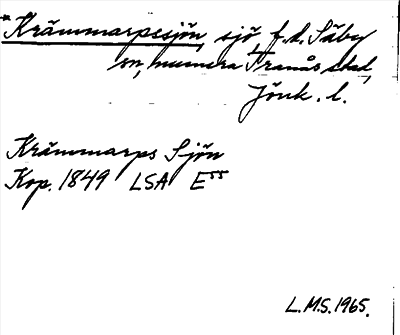 *Krämmarpssjön, sjö f.d. Säby
sn, numera Tranås stad,
Jönk. l.
Krämmarps Sjön
Kop. 1849 LSA E55
L.M.S. 1965.